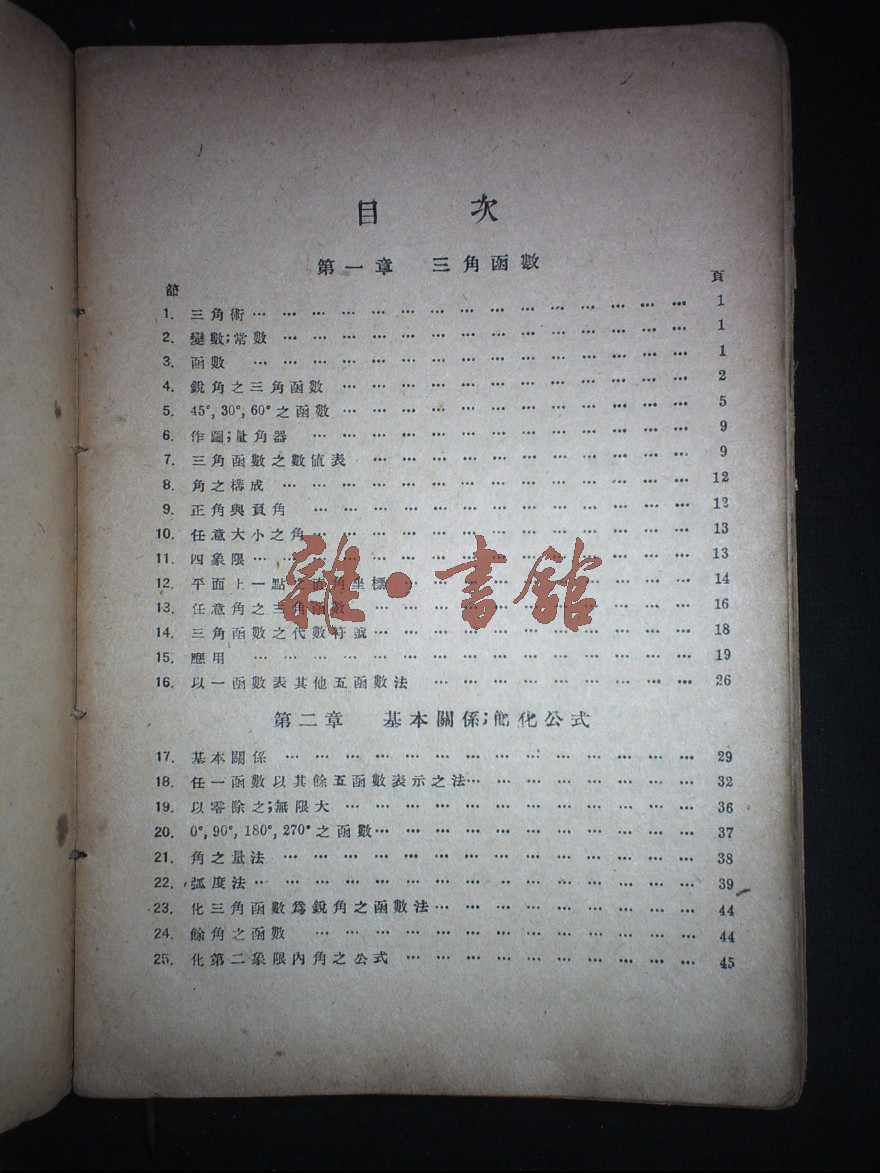 目 次
第一章 三角函數
節 頁
1. 三角術 … 1
2. 變數;常數 … 1
3. 函數 … 1
4. 銳角之三角函數 … 2
5. 45°, 30°, 60° 之函數 … 5
6. 作圖;量角器 … 9
7. 三角函數之數値表 … 9
8. 角之構成 … 12
9. 正角與負角 … 12
10. 任意大小之角 … 13
11. 四象限 … 13
12. 平面上一點之直角坐標 … 14
13. 任意角之三角函數 … 16
14. 三角函數之代數符號 … 18
15. 應用 … 19
16. 以一函數表其他五函數法 … 26
第二章 基本關係;簡化公式
17. 基本關係 … 29
18. 任一函數以其餘五函數表示之法 … 32
19. 以零除之;無限大 … 36
20. 0°, 90°, 180°, 270° 之函數 … 37
21. 角之量法 … 38
22. 弧度法 … 39
23. 化三角函數爲銳角之函數法 … 44
24. 餘角之函數 … 44
25. 化第二象限內角之公式 … 45
雜·書館